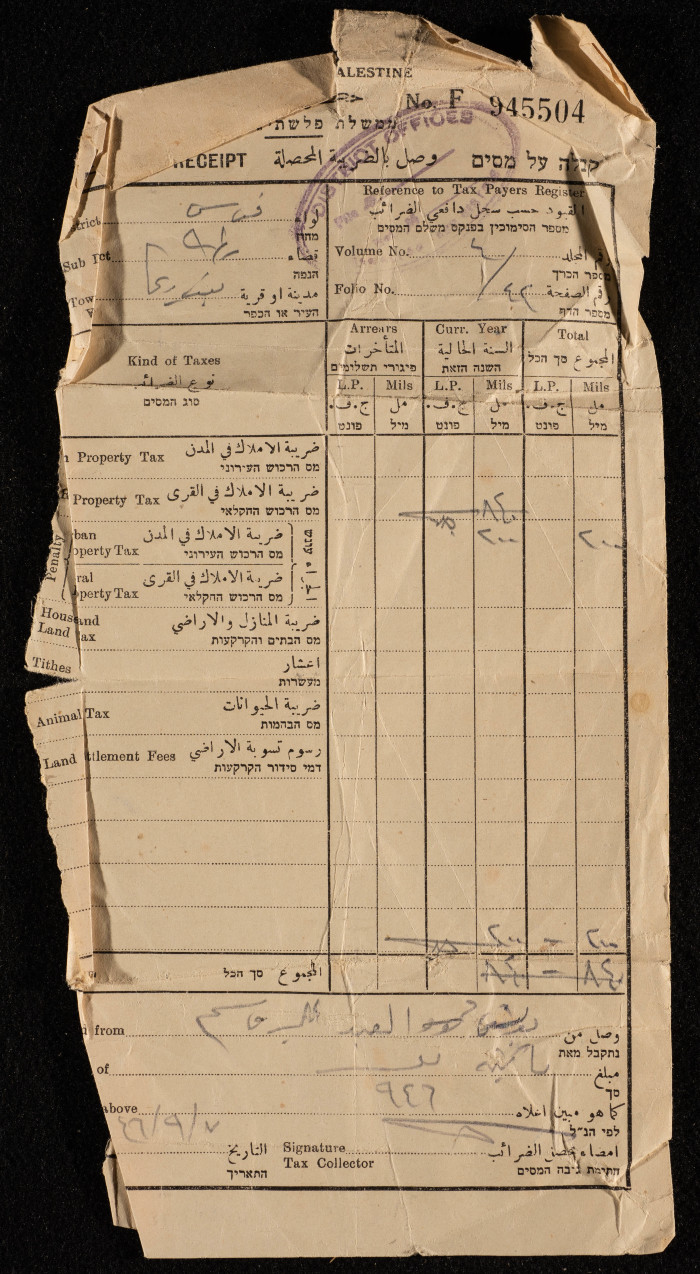 ALESTINE
No. F 945504
ממשלת פלשתי
RECEIPT وصل بالضريبة المحصلة קבלה על מסים
DISTRICT OFFICES
Reference to Tax Payers Register
القيود حسب سجل دافعي الضرائب
מספר הסימוכין בפנקס משלם המסים
strict لواء
מחוז
Sub ct قضاء
הנפה
Tow مدينة او قرية
העיר או הכפר
Volume No. رقم المجلد
מספר הכרך
Folio No. رقم الصفحة ٤٣
מספר הדף
Kind of Taxes
نوع الضرائب
סוג המסים
Arrears Curr. Year Total
المتأخرات السنة الحالية المجموع סך הכל
פיגורי תשלומים השנה הזאת
L.P. Mils L.P. Mils L.P. Mils
ج.ف. مل ج.ف. مل ج.ف. مل
פונט מיל פונט מיל פונט מיל
n Property Tax ضريبة الاملاك في المدن
מס הרכוש העירוני
Property Tax ضريبة الاملاك في القرى ٨٤٠
מס הרכוש החקלאי
Penalty
ban operty Tax ضريبة الاملاك في المدن ٢٠٠ ٢٠٠
מס הרכוש העירוני
ral perty Tax ضريبة الاملاك في القرى
מס הרכוש החקלאי
House and Land ax ضريبة المنازل والاراضي
מס הבתים והקרקעות
Tithes اعشار
מעשרות
Animal Tax ضريبة الحيوانات
מס הבהמות
Land ttlement Fees رسوم تسوية الاراضي
דמי סידור הקרקעות
٢٠٠ - ٢٠٠
المجموع סך הכל ٨٤٠ - ٨٤٠
from وصل من
נתקבל מאת
of مبلغ
סך
above كما هو مبين اعلاه ٩٤٦
לפי הנ״ל
٤٦/٩/٧
التاريخ Signature امضاء محصل الضرائب
התאריך Tax Collector חתימת גובה המסים